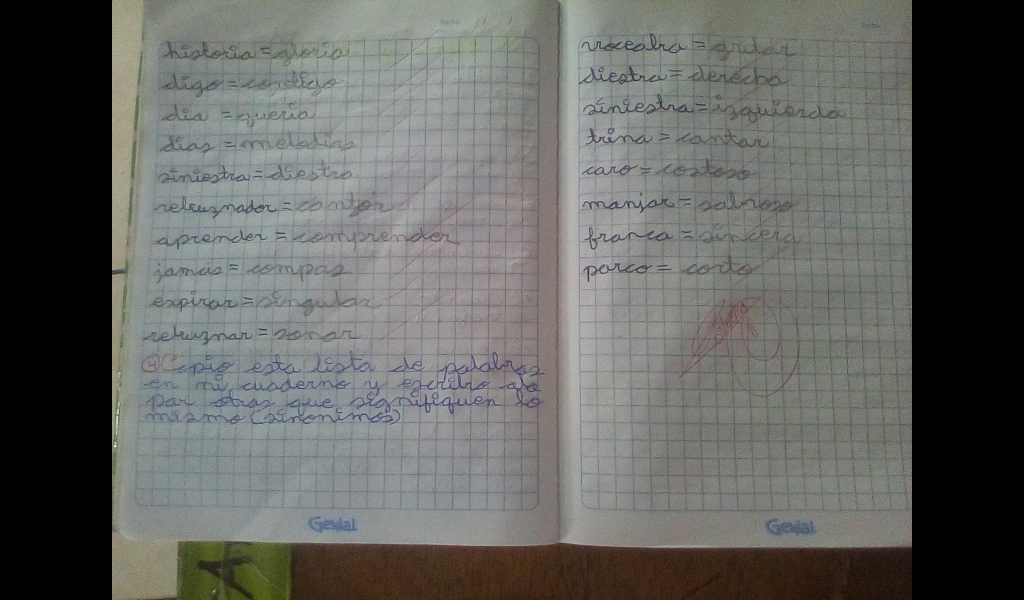 historia = gloria
digo = contigo
dia = queria
dias = melodias
siniestra = diestra
rebuznador = cantor
aprender = comprender
jamas = compas
expirar = singular
rebuznar = sonar
4) Copio esta lista de palabras
en mi cuaderno y escribo a la
par otras que signifiquen lo
mismo (sinonimos)
Genial
voceaba = gritar
diestra = derecha
siniestra = izquierda
trina = cantar
caro = costoso
manjar = sabroso
franca = sincera
parco = corto
Genial